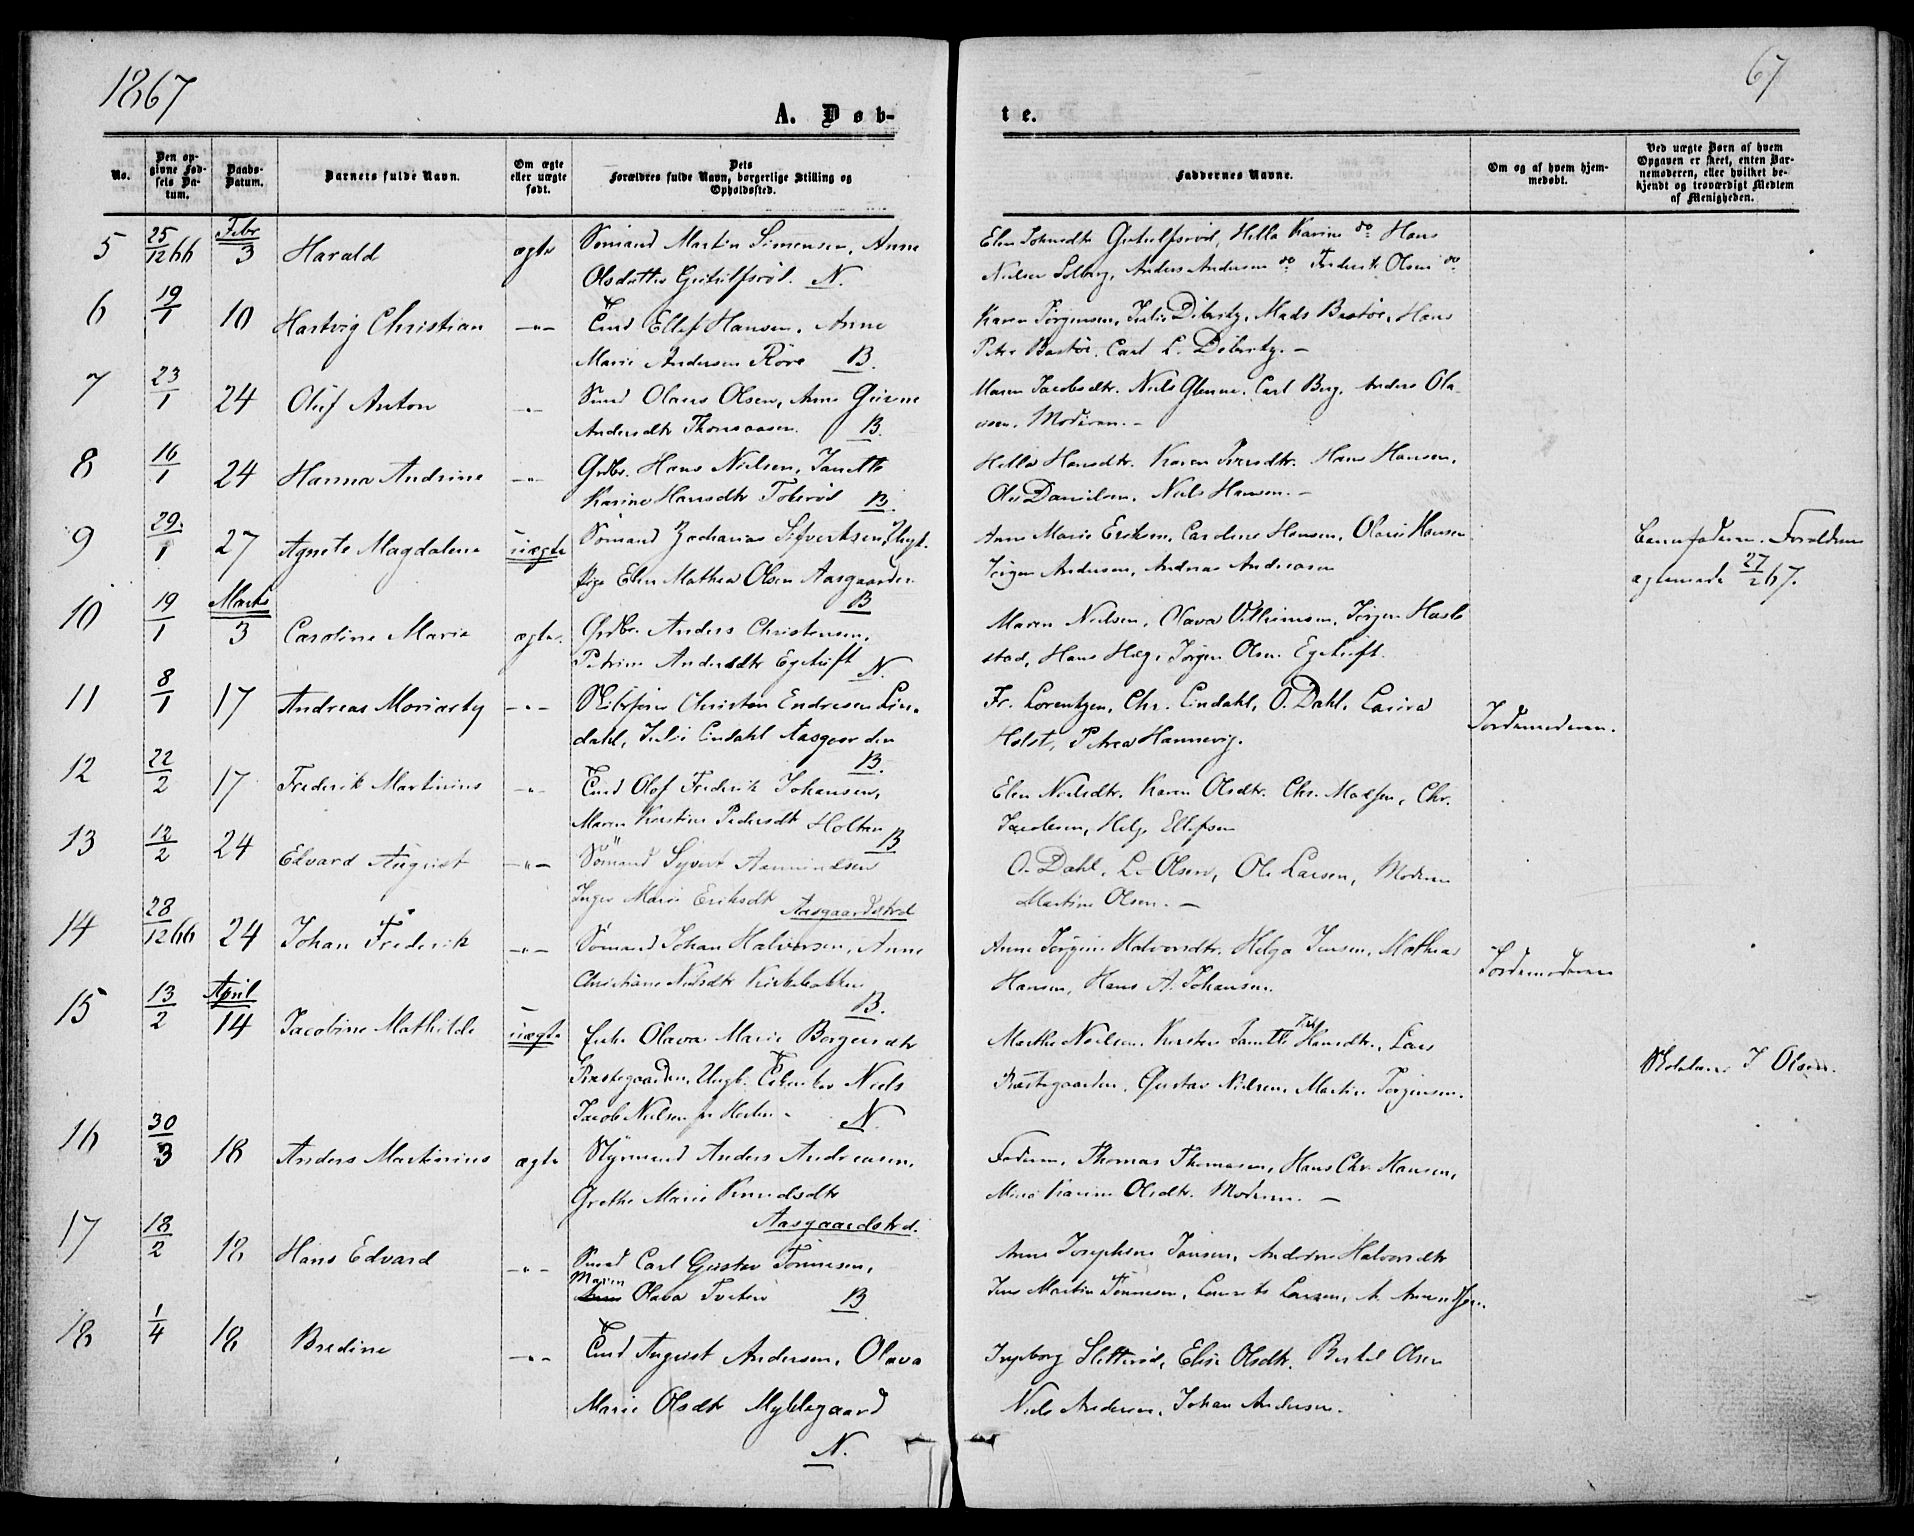 1867
67
A. Døb-
te.
No.
Den op-
givne Fød-
sels Da-
tum.
Daabs-
Datum.
Barnets fulde Navn.
Om ægte
eller uægte
født.
Dets
Forældres fulde Navn, borgerlige Stilling og
Opholdssted.
Faddernes Navne.
Om og af hvem hjem-
medøbt.
Ved uægte Børn af hvem
Opgaven er skeet, enten Bar-
nemoderen, eller hvilket be-
kjendt og troværdigt Medlem
af Menigheden.
5 25/12 66 Febr 3 Harald ægte Sømand Martin Simensen, Anne
Olsdatter N.
Hella Karine do Hans
Nielsen Solberg, Anders Andersen do Frederik Olsen do
6 19/1 10 Hartvig Christian -"- Ellef Hansen, Anne
Marie Andersen Røre B.
Karen Jørgensen, Julie Mads Bastøe, Hans
Peter Bastøe, Carl L. -
7 23/1 24 Oluf Anton -"- Smd Olaus Olsen, Anne
Andersdtr B.
Maren Jacobsdtr. Niels Glenne, Carl Berg, Anders Ola-
vsen, Moderen. -
8 16/1 24 Hanna Andrine -"- Grdbr. Hans Nielsen, Janette
Karine Hansdtr B.
Hella Hansdtr. Karen Iversdtr. Hans Hansen,
Ole Danielsen, Niels Hansen. -
9 29/1 27 Agnete Magdalene uægte Sømand Zacharias Sifvertsen, Ungk.
Pige Elen Mathea Olsen Aasgaarden
B
Anne Marie Eriksen, Caroline Hansen, Olava Hansen
Jørgen Andersen, Andreas Andreasen
Barnefaderen. Forældrene
27/2 67.
10 19/1 Marts 3 Caroline Marie ægte. Grdbr. Anders Christensen,
Petrine Andersdtr N.
Maren Nielsen, Olava Jørgen Hasle-
stad, Hans Jørgen Olsen
11 8/1 17 Andreas Moriarty -"- Skibsfører Christen Endresen Lin-
dahl, Julie Lindahl Aasgaarden
B.
Fr. Lorentzen, Chr. Lindahl, O. Dahl, Laura
Holst, Petrea Hannevig.
Jordemoderen.
12 22/2 17 Frederik Martinius -"- Olof Frederik Johansen,
Maren Kirstine Pedersdt Holtan
B
Elen Nielsdtr. Karen Olsdtr. Chr. Chr.
Jacobsen, Helge Ellefsen
13 12/2 24 Edvard August -"- Sømand Syvert
Inger Marie Eriksdt Aasgaardstrd
O. Dahl, L. Olsen, Ole Larsen, Moderen
Martine Olsen. -
14 28/12 66 24 Johan Frederik -"- Sømand Johan Halvorsen, Anne
Christiane Nielsdtr Kirkebakken
B.
Anne Jørgine Halvorsdtr. Helga Jensen, Mathea
Hansen, Hans A. Johansen.
Jordemoderen
15 13/2 April 14 Jacobine Mathilde uægte Enke Olava Marie Borgersdtr
Præstegaarden, Ungk. Niels
Jacob Nielsen N.
Marthe Nielsen, Hansdtr., Lars
Præstegaarden, Gustav Nielsen, Martin Jørgensen.
J Olsen.
16 30/3 18 Anders Martinius ægte Styrmand Anders Andreasen,
Grethe Marie Knudsdtr
Aasgaardstrd.
Faderen, Thomas Thomasen, Hans Chr. Hansen,
Karine Olsdtr. Moderen. -
17 18/2 18 Hans Edvard -"- Smd Carl Gustav Tønnesen,
Maren
Olava Tveten B
Anne Josephine Jansen, Andrine Halvorsdtr
Jens Martin Tønnesen, Laurits Larsen, A.
18 1/4 18 Bredine -"- August Andersen, Olava
Marie Olsdtr Myklegaard
N.
Ingeborg Elise Olsdtr. Bertel Olsen
Niels Andersen, Johan Andersen.